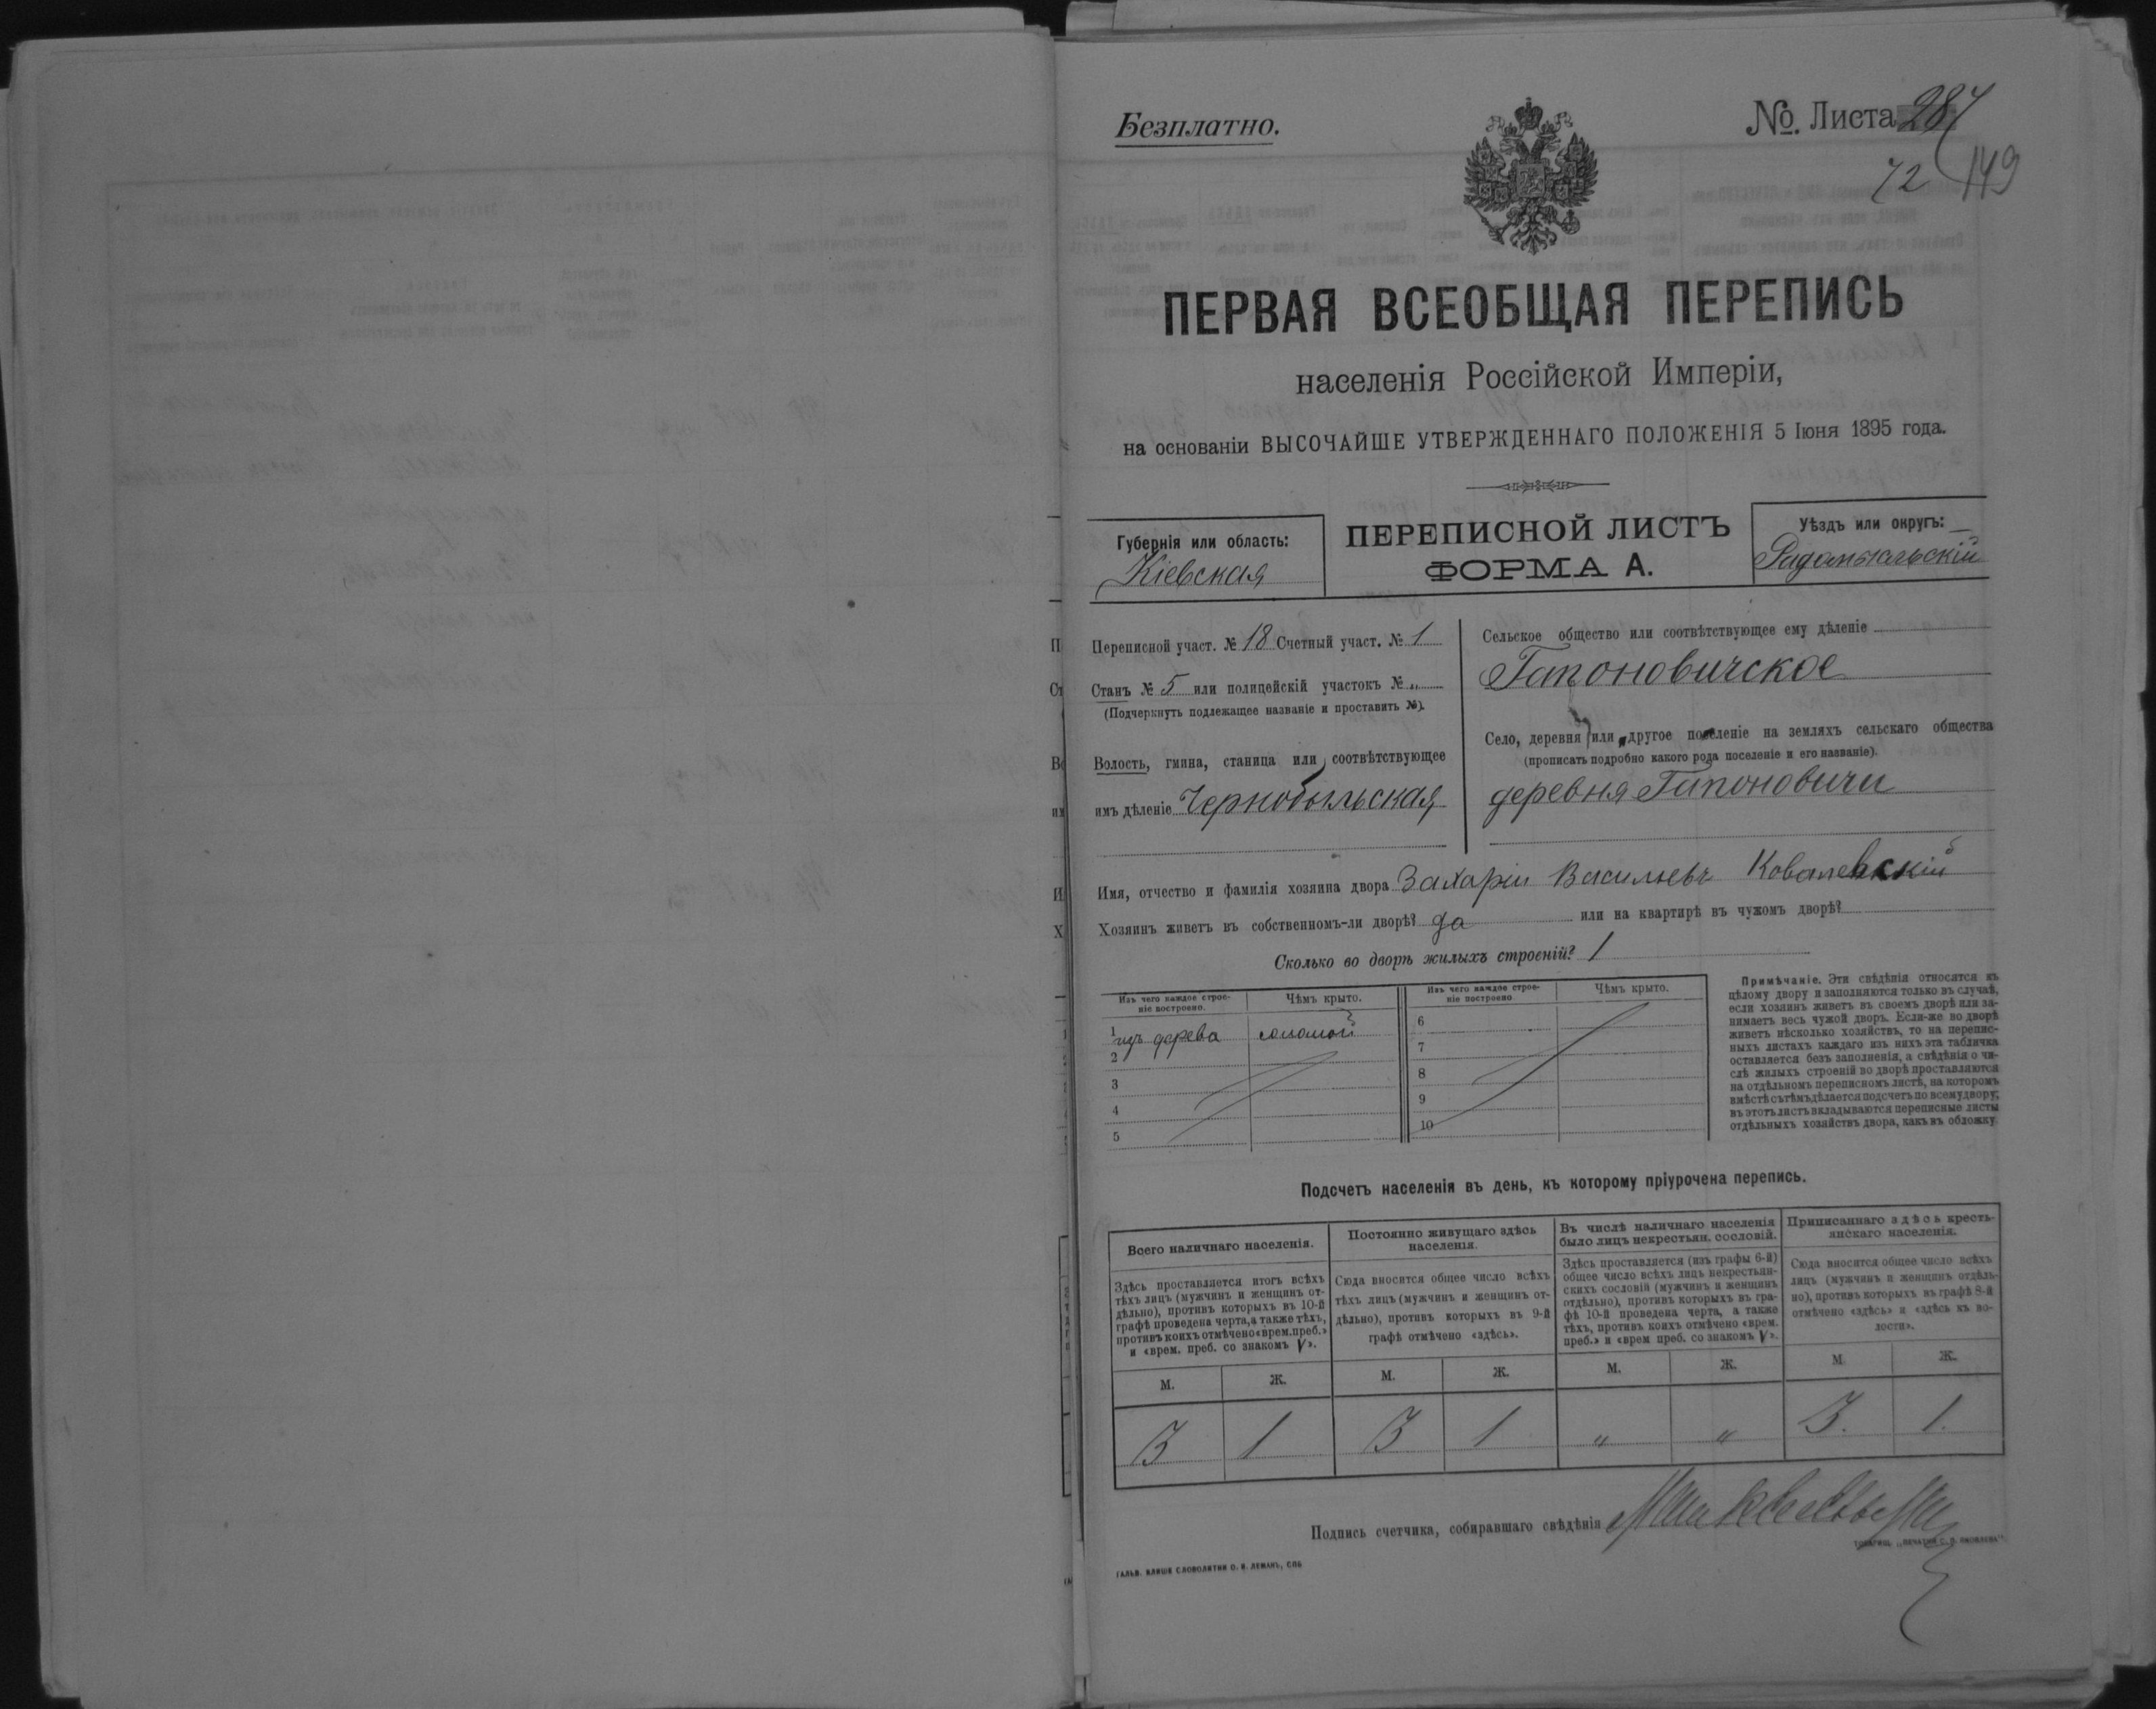 Безплатно.
№. Листа 287
72 149
ПЕРВАЯ ВСЕОБЩАЯ ПЕРЕПИСЬ
населенія Россійской Имперіи,
на основаніи ВЫСОЧАЙШЕ УТВЕРЖДЕННАГО ПОЛОЖЕНІЯ 5 Іюня 1895 года.
Губернія или область:
Кіевская
ПЕРЕПИСНОЙ ЛИСТЪ
ФОРМА А.
Уѣздъ или округъ:
Радомысльскій
Переписной участ. № 18 Счетный участ. № 1
Станъ № 5 или полицейскій участокъ № „
(Подчеркнуть подлежащее названіе и проставить №).
Волость, гмина, станица или соотвѣтствующее
имъ дѣленіе Чернобыльская
Сельское общество или соотвѣтствующее ему дѣленіе
Гапоновичское
Село, деревня или другое поселеніе на земляхъ сельскаго общества
(прописать подробно какого рода поселеніе и его названіе).
деревня Гапоновичи
Имя, отчество и фамилія хозяина двора Захарій Васильевъ Ковалевскій
Хозяинъ живетъ въ собственномъ-ли дворѣ? да или на квартирѣ въ чужомъ дворѣ?
Сколько во дворѣ жилыхъ строеній? 1
Изъ чего каждое строе-
ніе построено.
Чѣмъ крыто.
Изъ чего каждое строе-
ніе построено
Чѣмъ крыто.
1 изъ дерева соломой
2
3
4
5
6
7
8
9
10
Примѣчаніе. Эти свѣдѣнія относятся къ
цѣлому двору и заполняются только въ случаѣ,
если хозяинъ живетъ въ своемъ дворѣ или за-
нимаетъ весь чужой дворъ. Если-же во дворѣ
живетъ нѣсколько хозяйствъ, то на перепис-
ныхъ листахъ каждаго изъ нихъ эта табличка
оставляется безъ заполненія, а свѣдѣнія о чи-
слѣ жилыхъ строеній во дворѣ проставляются
на отдѣльномъ переписномъ листѣ, на которомъ
вмѣстѣ съ тѣмъ дѣлается подсчетъ по всему двору;
въ этотъ листъ вкладываются переписные листы
отдѣльныхъ хозяйствъ двора, какъ въ обложку.
Подсчетъ населенія въ день, къ которому пріурочена перепись.
Всего наличнаго населенія.
Здѣсь проставляется итогъ всѣхъ
тѣхъ лицъ (мужчинъ и женщинъ от-
дѣльно), противъ которыхъ въ 10-й
графѣ проведена черта, а также тѣхъ,
противъ коихъ отмѣчено «врем. преб.»
и «врем. преб. со знакомъ V».
Постоянно живущаго здѣсь
населенія.
Сюда вносится общее число всѣхъ
тѣхъ лицъ (мужчинъ и женщинъ от-
дѣльно), противъ которыхъ въ 9-й
графѣ отмѣчено «здѣсь».
Въ числѣ наличнаго населенія
было лицъ некрестьян. сословій.
Здѣсь проставляется (изъ графы 6-й)
общее число всѣхъ лицъ некрестьян-
скихъ сословій (мужчинъ и женщинъ
отдѣльно), противъ которыхъ въ гра-
фѣ 10-й проведена черта, а также
тѣхъ, противъ коихъ отмѣчено «врем.
преб.» и «врем преб. со знакомъ V».
Приписаннаго здѣсь кресть-
янскаго населенія.
Сюда вносится общее число всѣхъ
лицъ (мужчинъ и женщинъ отдѣль-
но), противъ которыхъ въ графѣ 8-й
отмѣчено «здѣсь» и «здѣсь къ во-
лости».
М. Ж. М. Ж. М. Ж. М. Ж.
3 1 3 1 „ „ 3. 1.
Подпись счетчика, собиравшаго свѣдѣнія
ГАЛЬВ. КЛИШЕ СЛОВОЛИТНИ О. И. ЛЕМАНЪ, СПБ
ТОВАРИЩ. „ПЕЧАТНЯ С. П. ЯКОВЛЕВА".